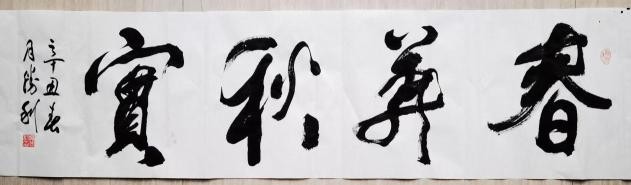 春華秋實
辛丑春
月勝利